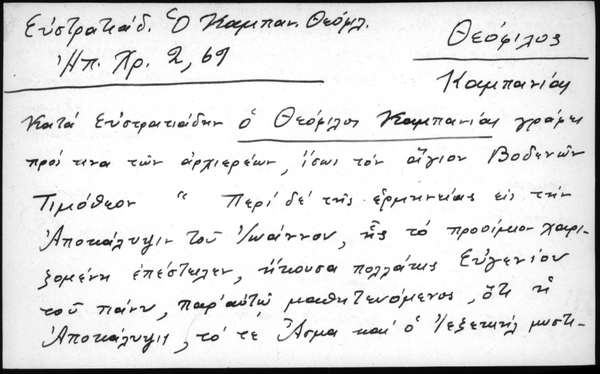 Εὐστρατιάδ. Ὁ Καμπαν. Θεόφιλ.
Ἠπ. Χρ. 2, 69
Θεόφιλος
Καμπανίας
Κατά Εὐστρατιάδην ὁ Θεόφιλος Καμπανίας γράφει
πρός τινα τῶν ἀρχιερέων, ἴσως τόν ἅγιον Βοδενῶν
Τιμόθεον " Περί δέ τῆς ἑρμηνείας εἰς τήν
Ἀποκάλυψιν τοῦ Ἰωάννου, ἧς τό προοίμιον χαρι-
ζομένη ἐπέστειλεν, ἤκουσα πολλάκις Εὐγενίου
τοῦ πάνυ, παρ' αὐτῷ μαθητευόμενος, ὅτι ἡ
Ἀποκάλυψις, τό τε Ἆσμα καί ὁ Ἰεζεκιήλ μυστι-